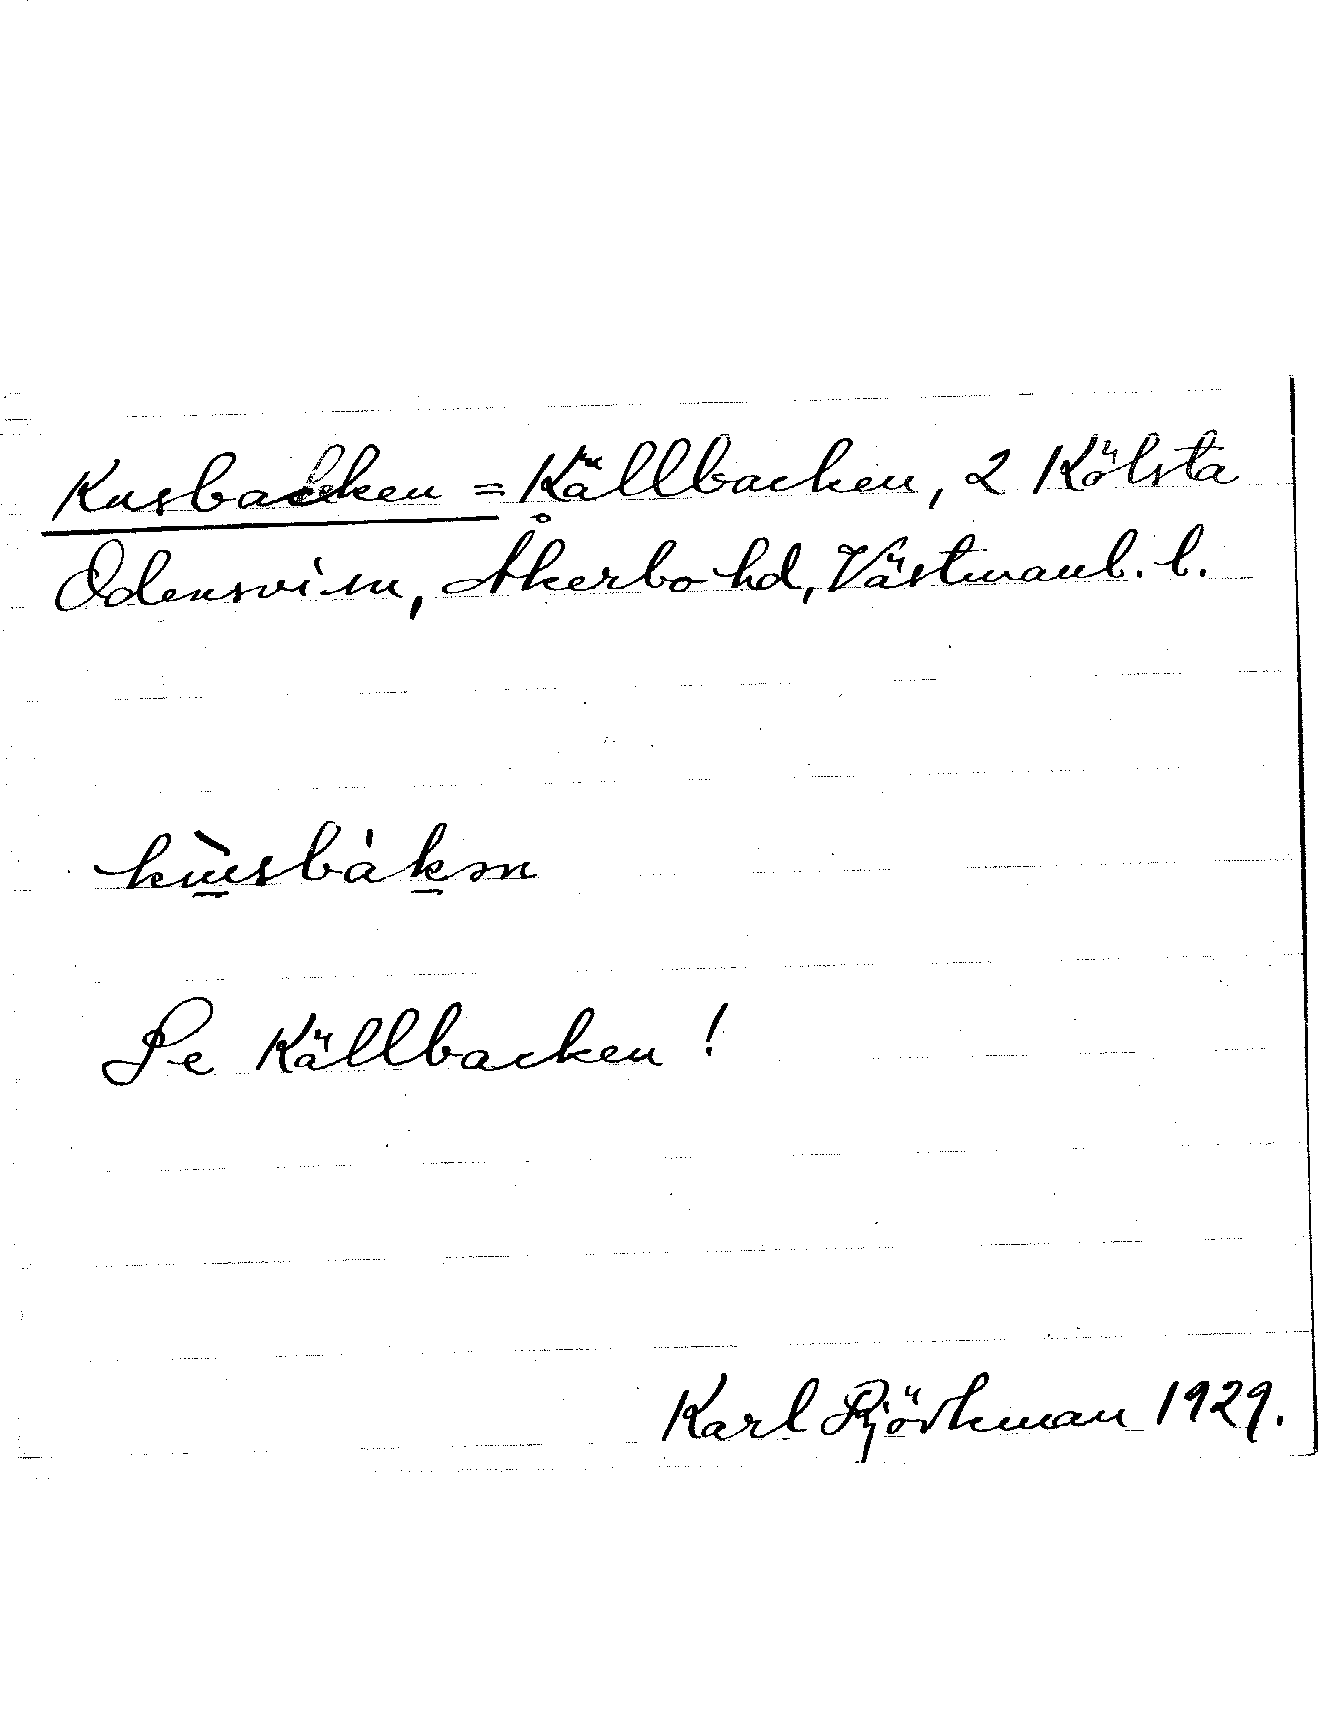 Kusbacken = Källbacken, 2 Kölsta
Odensvi sn, Åkerbo hd, Västmanl. l.
kùsbàkən
Se Källbacken!
Karl Björkman 1929.